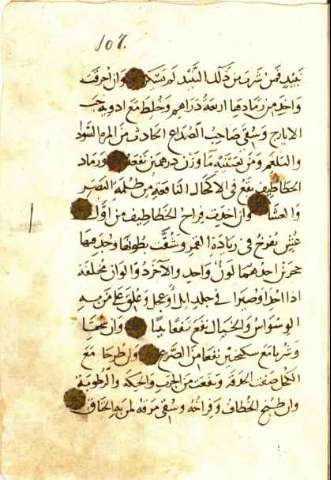 107
نبيذ فمن شرب من ذلك النبيذ لم يسكر وان احرقت
واخذ من رمادها اربعة دراهم وخلط مع ادوية حب
الايارج وسقي صاحب الصداع الحادث من المرة السودا
والبلغم ومن نصبته ما وزن درهمين نفعه ورماد
الخطاطيف يقع في الاكحال النافعة من ظلمة البصر
والغشا وان اخذت فراخ الخطاطيف من اول
عش يفرخ في زيادة القمر وشقت بطونها وجد فيها
حجرين احدهما لون واحد والاخر ذو الوان مختلفة
اذا اخذا وصرا في جلد ايل او عجل وعلق على من به
الوسواس والخبال نفع نفعا بينا وان سحقا
وشربا مع سكنجبين نفعا من الصرع وان طرحا مع
الكحل نفعت من الجرب والحكة والرطوبة
وان طبخ الخطاف وفراخه وسقي مرقه لمن به الخناق